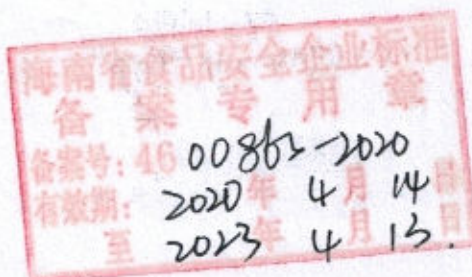 海南省食品安全企业标准
备案专用章
备案号：46 00863-2020
有效期：2020年4月14日
至 2023年4月13日